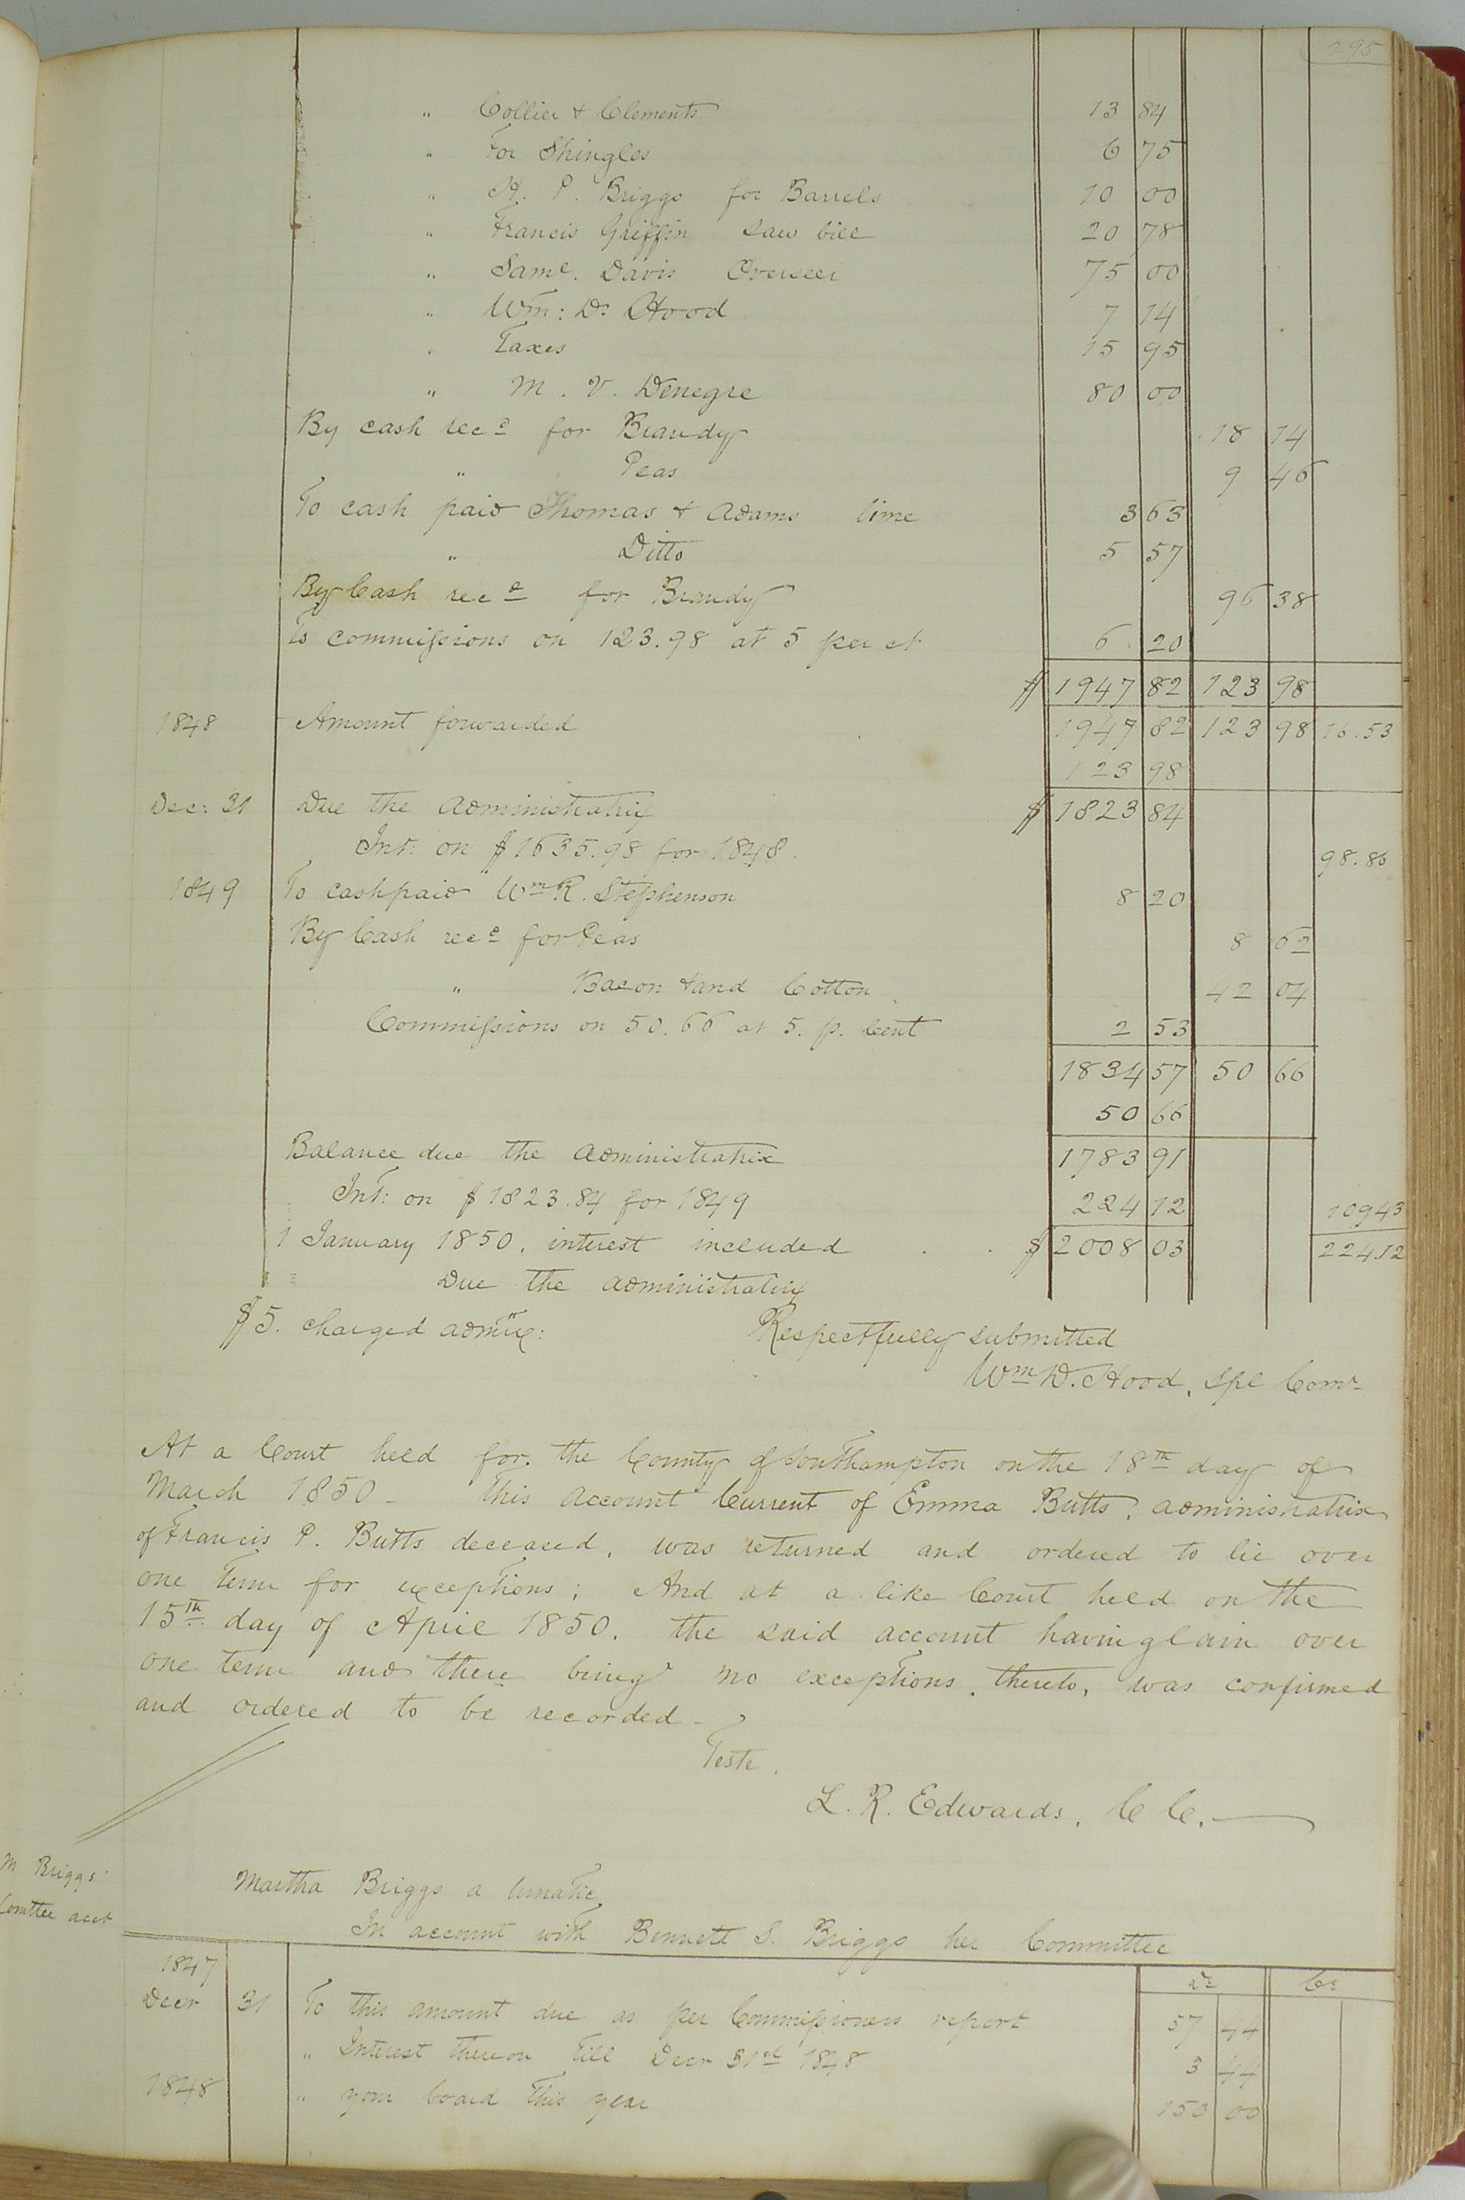 295
" Collier & Clements 13 84
" For Shingles 6 75
" H. P. Briggs for Barrels 10 00
" Francis Griffin Saw bill 20 78
" Saml. Davis Overseer 75 00
" Wm: D. Hood 7 14
" Taxes 15 95
" M. V. Denegre 80 00
By cash recd for Brandy 18 14
" Peas 9 46
To cash paid Thomas & Adams lime 3 63
" Ditto 5 57
By Cash recd for Brandy 96 38
To commissions on 123.98 at 5 per ct 6 20
$ 1947 82 123 98
1848 Amount forwarded 1947 82 123 98 16.53
123 98
Dec: 31 Due the administratrix $ 1823 84
Int: on $1635.98 for 1848. 98.86
1849 To cash paid Wm R. Stephenson 8 20
By Cash recd for Peas 8 62
" Bacon & and Cotton 42 04
Commissions on 50.66 at 5. p. Cent 2 53
1834 57 50 66
50 66
Balance due the administratrix 1783 91
Int: on $1823.84 for 1849 224 12 10943
1 January 1850, interest included $ 2008 03 224.12
Due the administratrix
$5. charged admrx: Respectfully submitted
Wm D. Hood, Spl Comr
At a Court held for the County of Southampton on the 18th day of
March 1850 - This account Current of Emma Butts, administratrix
of Francis P. Butts deceased, was returned and ordered to lie over
one Term for exceptions; And at a like Court held on the
15th day of April 1850. the said account having lain over
one term and there being no exceptions, thereto, was confirmed
and ordered to be recorded -
Teste,
L. R. Edwards, C C.
M Briggs'
Comttee acct
Martha Briggs a lunatic,
In account with Bennett S. Briggs her Committee
1847 Dr Cr
Decr 31 To this amount due as per Commissioners report 57 44
" Interest thereon till Decr 31st 1848 3 44
1848 " your board this year 150 00